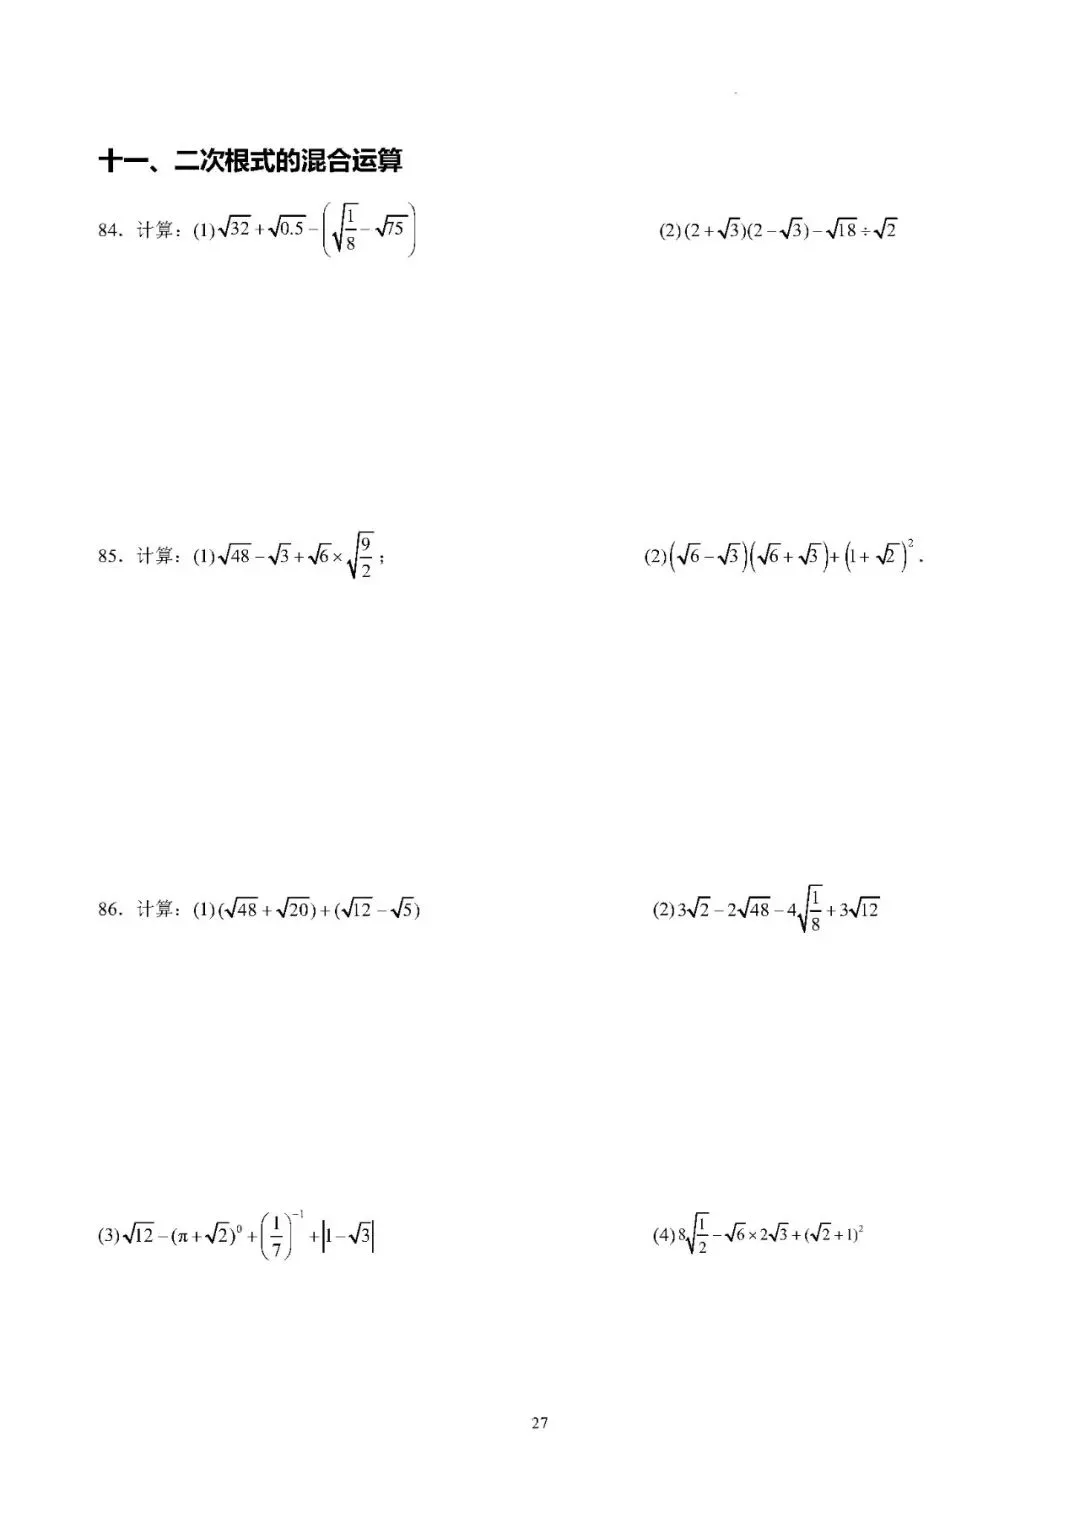 十一、二次根式的混合运算
84．计算：(1)√32 + √0.5 − (√(1/8) − √75) (2)(2 + √3)(2 − √3) − √18 ÷ √2
85．计算：(1)√48 − √3 + √6 × √(9/2)； (2)(√6 − √3)(√6 + √3) + (1 + √2)²．
86．计算：(1)(√48 + √20) + (√12 − √5) (2)3√2 − 2√48 − 4√(1/8) + 3√12
(3)√12 − (π + √2)⁰ + (1/7)⁻¹ + |1 − √3| (4)8√(1/2) − √6 × 2√3 + (√2 + 1)²
27